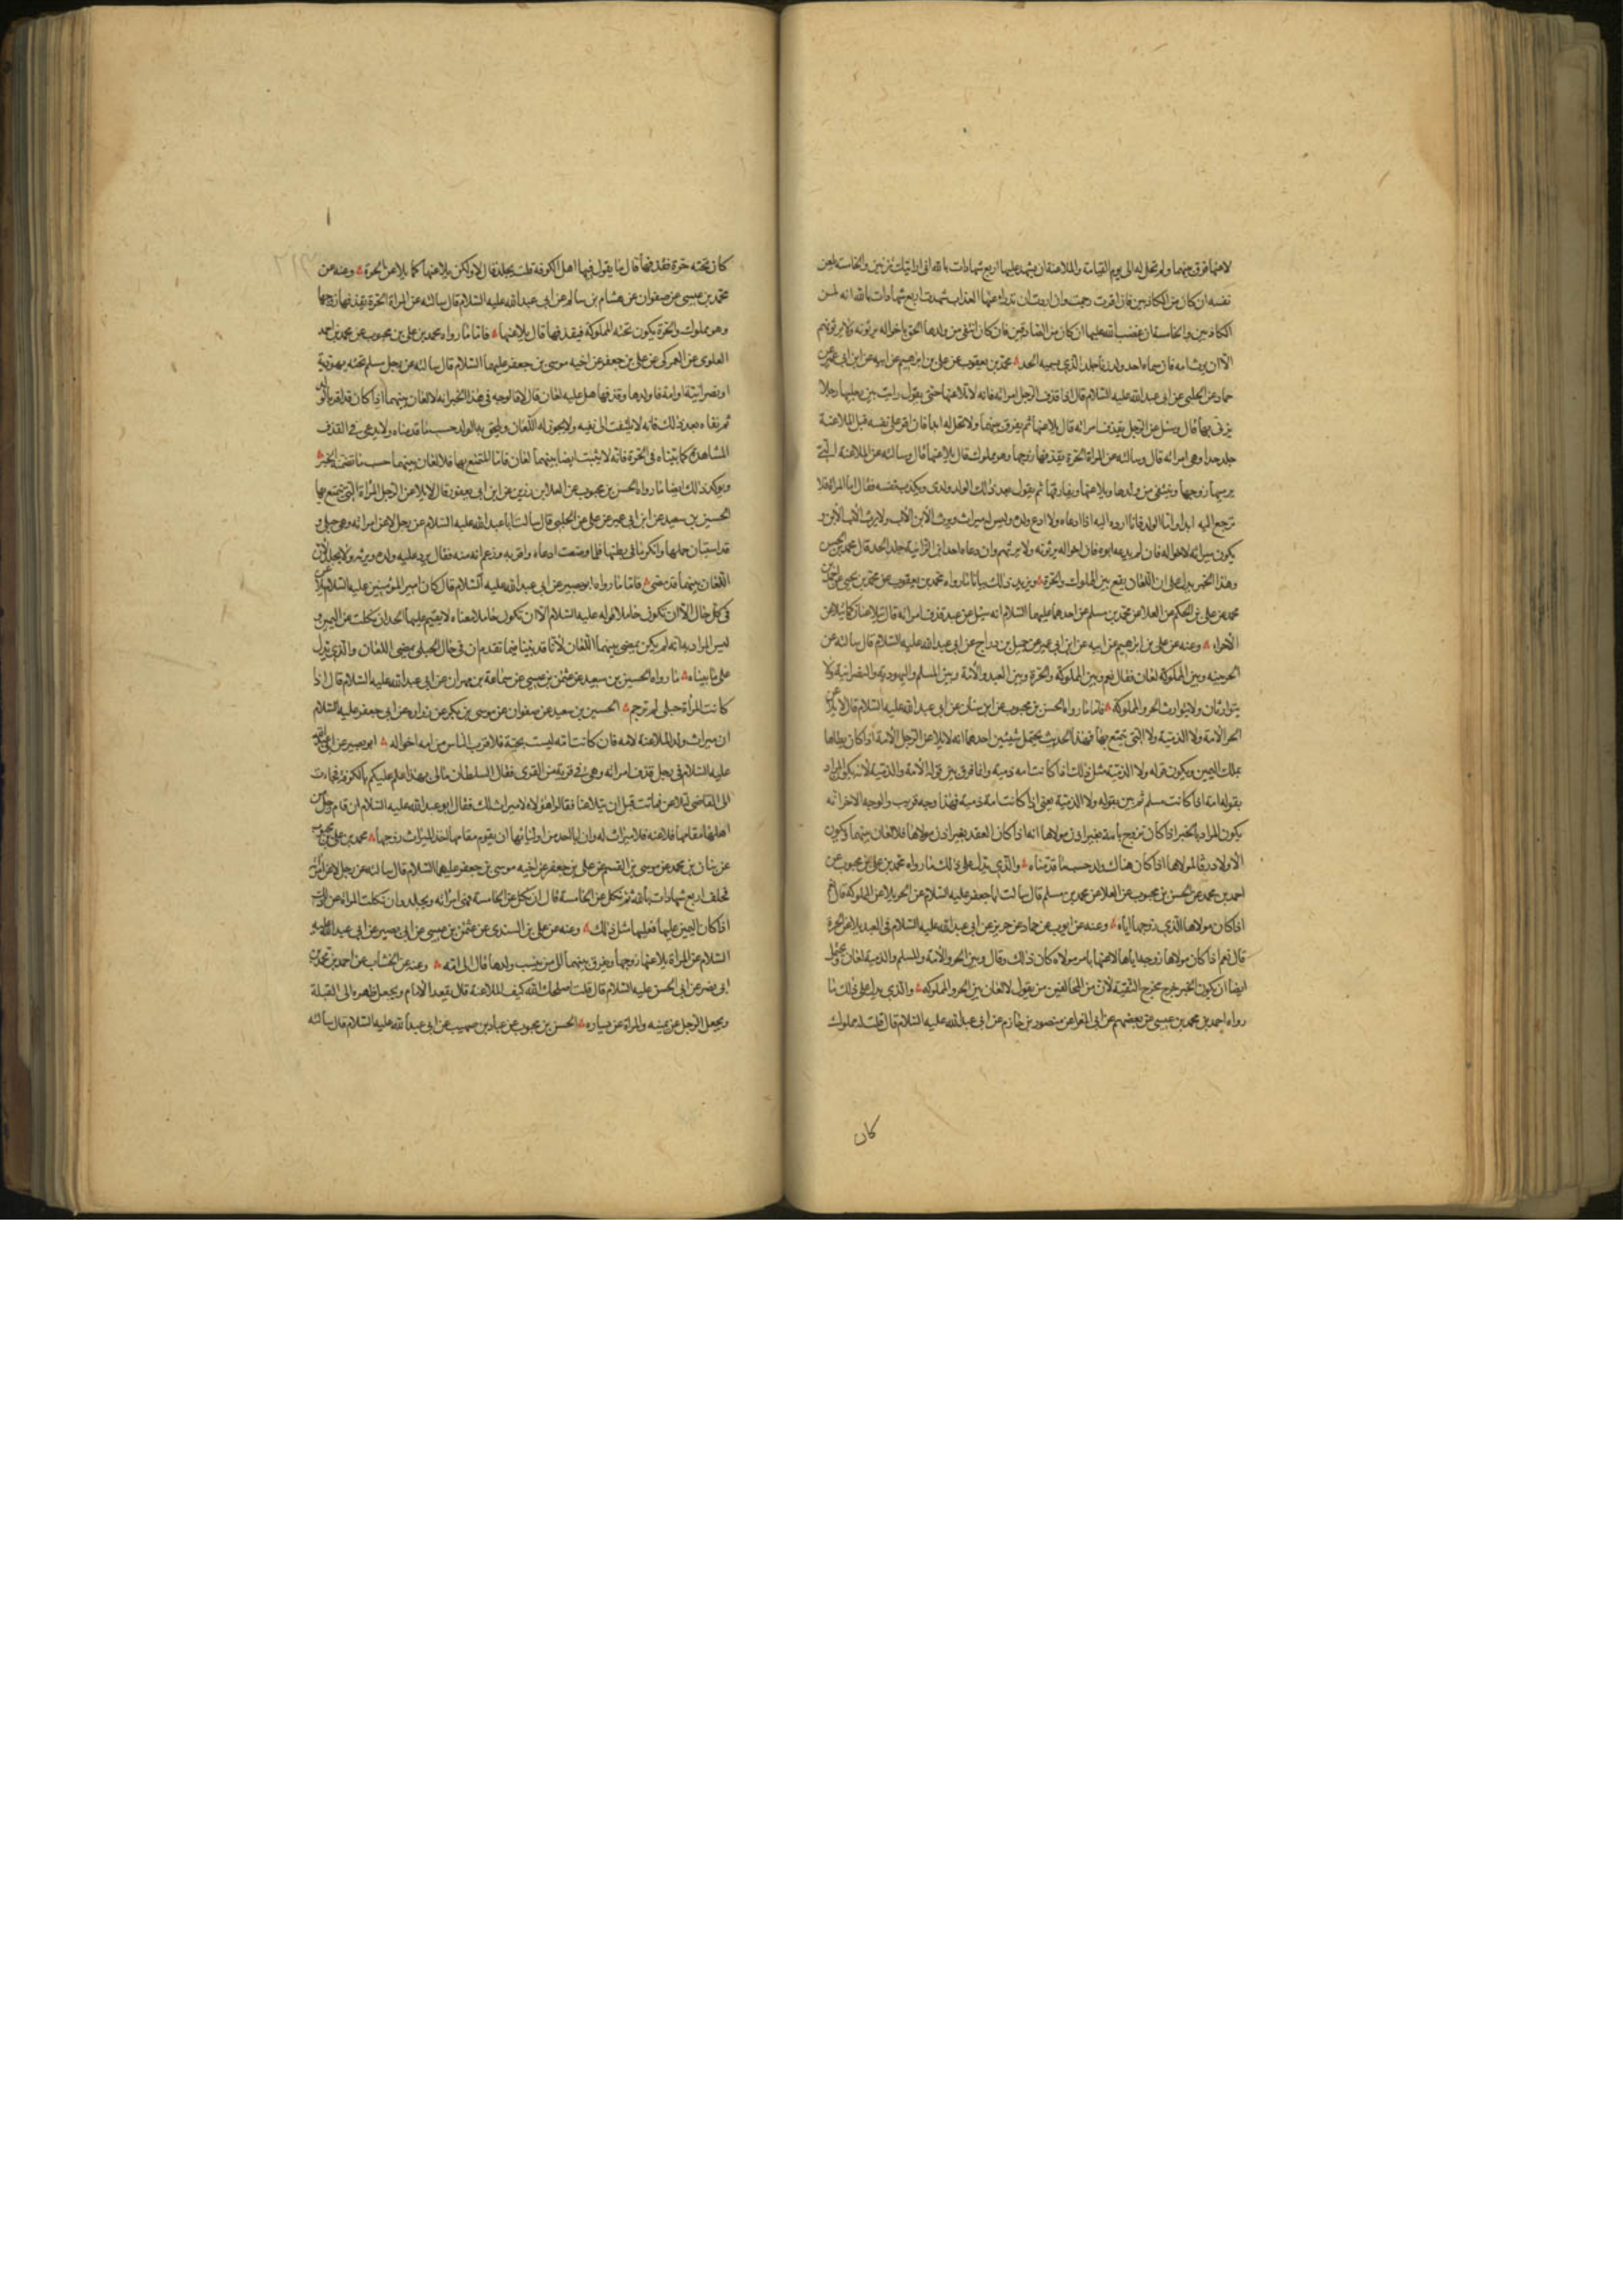 لاعنها فرق بينهما ولم تحل له الى يوم القيامة والملاعنة ان يشهد عليها اربع شهادات بالله انى رايتك تزنين والخامسة يلعن
نفسه ان كان من الكاذبين فان اقرت رجمت وان ارادت ان تدرا عنها العذاب شهدت اربع شهادات بالله انه لمن
الكاذبين والخامسة ان غضب الله عليها ان كان من الصادقين فان كان انتفى من ولدها الحق باخواله يرثونه ولا يرثهم
الا ان يرث امه فان سماه احد ولد زنا جلد الذي يسميه الحد محمد بن يعقوب عن على بن ابرهيم عن ابيه عن ابن ابى عمير عن
حماد عن الحلبى عن ابى عبد الله عليه السلام قال اذا قذف الرجل امراته فانه لا يلاعنها حتى يقول رايت بين رجليها رجلا
يزنى بها قال وسئل عن الرجل يقذف امراته قال يلاعنها ثم يفرق بينهما ولا تحل له ابدا فان اقر على نفسه قبل الملاعنة
جلد حدا وهى امراته قال وسالته عن المراة الحرة يقذفها زوجها وهو مملوك قال يلاعنها قال وسالته عن الملاعنة التى
يرميها زوجها وينتفى من ولدها ويلاعنها ويفارقها ثم يقول بعد ذلك الولد ولدى ويكذب نفسه فقال اما المراة فلا
ترجع اليه ابدا واما الولد فانا ارده اليه اذا ادعاه ولا ادع ولده وليس له ميراث ويرث الابن الاب ولا يرث الاب الابن و
يكون ميراثه لاخواله فان لم يدعه ابوه فان اخواله يرثونه ولا يرثهم وان دعاه احد ابن الزانية جلد الحد قال محمد بن الحسن
وهذا الخبر يدل على ان اللعان يقع بين المملوك والحرة ويزيد ذلك بيانا ما رواه محمد بن يعقوب عن محمد بن يحيى عن احمد بن
محمد عن على بن الحكم عن العلا عن محمد بن مسلم عن احدهما عليهما السلام انه سئل عن عبد قذف امراته قال يتلاعنان كما يتلاعن
الاحرار وعنه عن على بن ابرهيم عن ابيه عن ابن ابى عمير عن جميل بن دراج عن ابى عبد الله عليه السلام قال سالته عن
الحر بينه وبين المملوكة لعان فقال نعم وبين المملوك والحرة وبين العبد والامة وبين المسلم واليهودية والنصرانية ولا
يتوارثان ولا يتوارث الحر والمملوكة فاما ما رواه الحسن بن محبوب عن ابن سنان عن ابى عبد الله عليه السلام قال لا يلاعن
الحر الامة ولا الذمية ولا التى يتمتع بها فهذا الحديث يحتمل شيئين احدهما انه لا يلاعن الرجل الامة اذا كان يطاها
بملك اليمين ويكون قوله ولا الذمية مثل ذلك اذا كانت امه ذمية وانما فرق بين قوله الامة والذمية لان يكون المراد
بقوله امة اذا كانت مسلمة ثم بين بقوله ولا الذمية يعنى اذا كانت امة ذمية فهذا وجه قريب والوجه الاخر انه
يكون المراد بالخبر اذا كان تزوج بامة بغير اذن مولاها انه اذا كان العقد بغير اذن مولاها فلا لعان بينهما ويكون
الاولاد رقا لمولاها اذا كان هناك ولد حسب ما قدمناه والذى يدل على ذلك ما رواه محمد بن على بن محبوب عن
احمد بن محمد عن الحسن بن محبوب عن العلا عن محمد بن مسلم قال سالت ابا جعفر عليه السلام عن الحر يلاعن المملوكة قال نعم
اذا كان مولاها الذى زوجها اياه وعنه عن ايوب عن حماد عن حريز عن ابى عبد الله عليه السلام فى العبد يلاعن الحرة
قال نعم اذا كان مولاها زوجه اياها لاعنها بامر مولاه كان ذلك وقال وبين الحر والامة والمسلم والذمية لعان ويحتمل
ايضا ان يكون الخبر خرج مخرج التقية لان من المخالفين من يقول لا لعان بين الحر والمملوكة والذى يدل على ذلك ما
رواه احمد بن محمد بن عيسى عن بعضهم عن ابى المغرا عن منصور بن حازم عن ابى عبد الله عليه السلام قال قلت له مملوك
كان
كان تحته حرة فقذفها فقال ما يقول فيها اهل الكوفة قلت يجلد قال لا ولكن يلاعنها كما يلاعن الحرة وعنه عن
محمد بن عيسى عن صفوان عن هشام بن سالم عن ابى عبد الله عليه السلام قال سالته عن المراة الحرة يقذفها زوجها
وهو مملوك والحرة يكون تحته المملوكة فيقذفها قال يلاعنها فاما ما رواه محمد بن على بن محبوب عن محمد بن احمد
العلوى عن العمركى عن على بن جعفر عن اخيه موسى بن جعفر عليهما السلام قال سالته عن رجل مسلم تحته يهودية
او نصرانية او امة فاولدها وقذفها هل عليه لعان قال لا فالوجه فى هذا الخبر انه لا لعان بينهما اذا كان قد اقر بالولد
ثم نفاه بعد ذلك فانه لا يلتفت الى نفيه ولا يجوز له اللعان ويلحق به الولد حسب ما قدمناه ولا يدعى فى القذف
المشاهدة كما بيناه فى الحرة فانه لا يثبت ايضا بينهما لعان فاما المتمتع بها فلا لعان بينهما حسب ما تضمنه الخبر
ويؤكد ذلك ايضا ما رواه الحسن بن محبوب عن العلا بن رزين عن ابن ابى يعفور قال لا يلاعن الرجل المراة التى يتمتع بها
الحسين بن سعيد عن ابن ابى عمير عن على عن الحلبى قال سالت ابا عبد الله عليه السلام عن رجل لاعن امراته وهى حبلى و
قد استبان حملها وانكر ما فى بطنها فلما وضعت ادعاه واقر به وزعم انه منه فقال يرد عليه ولده ويرثه ولا يجلد لان
اللعان بينهما قد مضى فاما ما رواه ابو بصير عن ابى عبد الله عليه السلام قال كان امير المؤمنين عليه السلام يلاعن
فى كل حال الا ان تكون حاملا قوله عليه السلام الا ان تكون حاملا معناه لا يقيم عليها الحد ان نكلت عن اليمين و
ليس المراد به انه لم يكن يمضى بينهما اللعان لانا قد بينا فيما تقدم ان فى حال الحبلى يمضى اللعان والذى يدل
على ما بيناه ما رواه الحسين بن سعيد عن عثمن بن عيسى عن سماعة بن مهران عن ابى عبد الله عليه السلام قال اذا
كانت المراة حبلى لم ترجم الحسين بن سعيد عن صفوان عن موسى بن بكر عن زرارة عن ابى جعفر عليه السلام
ان ميراث ولد الملاعنة لامه فان كانت امه ليست بحية فلاقرب الناس من امه اخواله ابو بصير عن ابى عبد الله
عليه السلام فى رجل قذف امراته وهى فى قرية من القرى فقال السلطان مالى بهذا علم عليكم بالكوفة فجاءت
الى القاضى لتلاعن فماتت قبل ان يتلاعنا فقالوا هؤلاء لا ميراث لك فقال ابو عبد الله عليه السلام ان قام رجل من
اهلها مقامها فلاعنه فلا ميراث له وان ابى احد من اوليائها ان يقوم مقامها اخذ الميراث زوجها محمد بن على بن محبوب
عن بنان بن محمد عن موسى بن القسم عن على بن جعفر عن اخيه موسى بن جعفر عليهما السلام قال سالته عن رجل لاعن امراته
فحلف اربع شهادات بالله ثم نكل عن الخامسة قال ان نكل عن الخامسة فهى امراته ويجلد وان نكلت المراة عن ذلك
اذا كان اليمين عليها فعليها مثل ذلك وعنه عن على بن السندى عن عثمن بن عيسى عن ابى بصير عن ابى عبد الله عليه
السلام عن المراة يلاعنها زوجها ويفرق بينهما الى من ينسب ولدها قال الى امه وعنه عن الخشاب عن احمد بن محمد بن
ابى نصر عن ابى الحسن عليه السلام قال قلت اصلحك الله كيف الملاعنة قال يقعد الامام ويجعل ظهره الى القبلة
ويجعل الرجل عن يمينه والمراة عن يساره الحسن بن محبوب عن عباد بن صهيب عن ابى عبد الله عليه السلام قال سالته